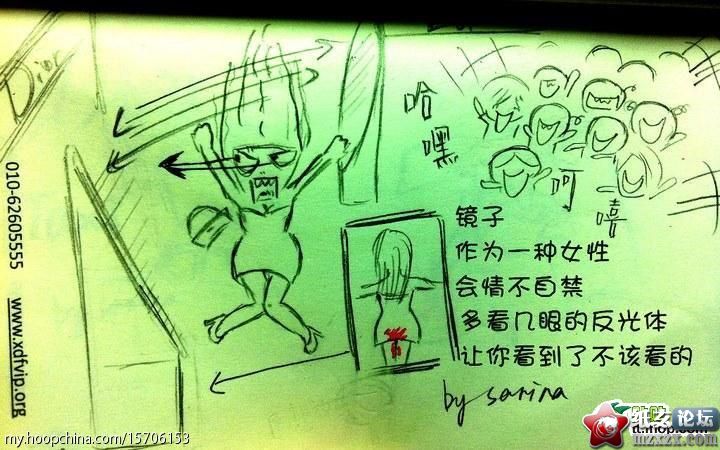 Dior
哈
嘿
呵
嘻
010-62605555
www.xdfvip.org
镜子
作为一种女性
会情不自禁
多看几眼的反光体
让你看到了不该看的
by sarina
my.hoopchina.com/15706153
纸女论坛
tt.mop.com
mzxzx.com